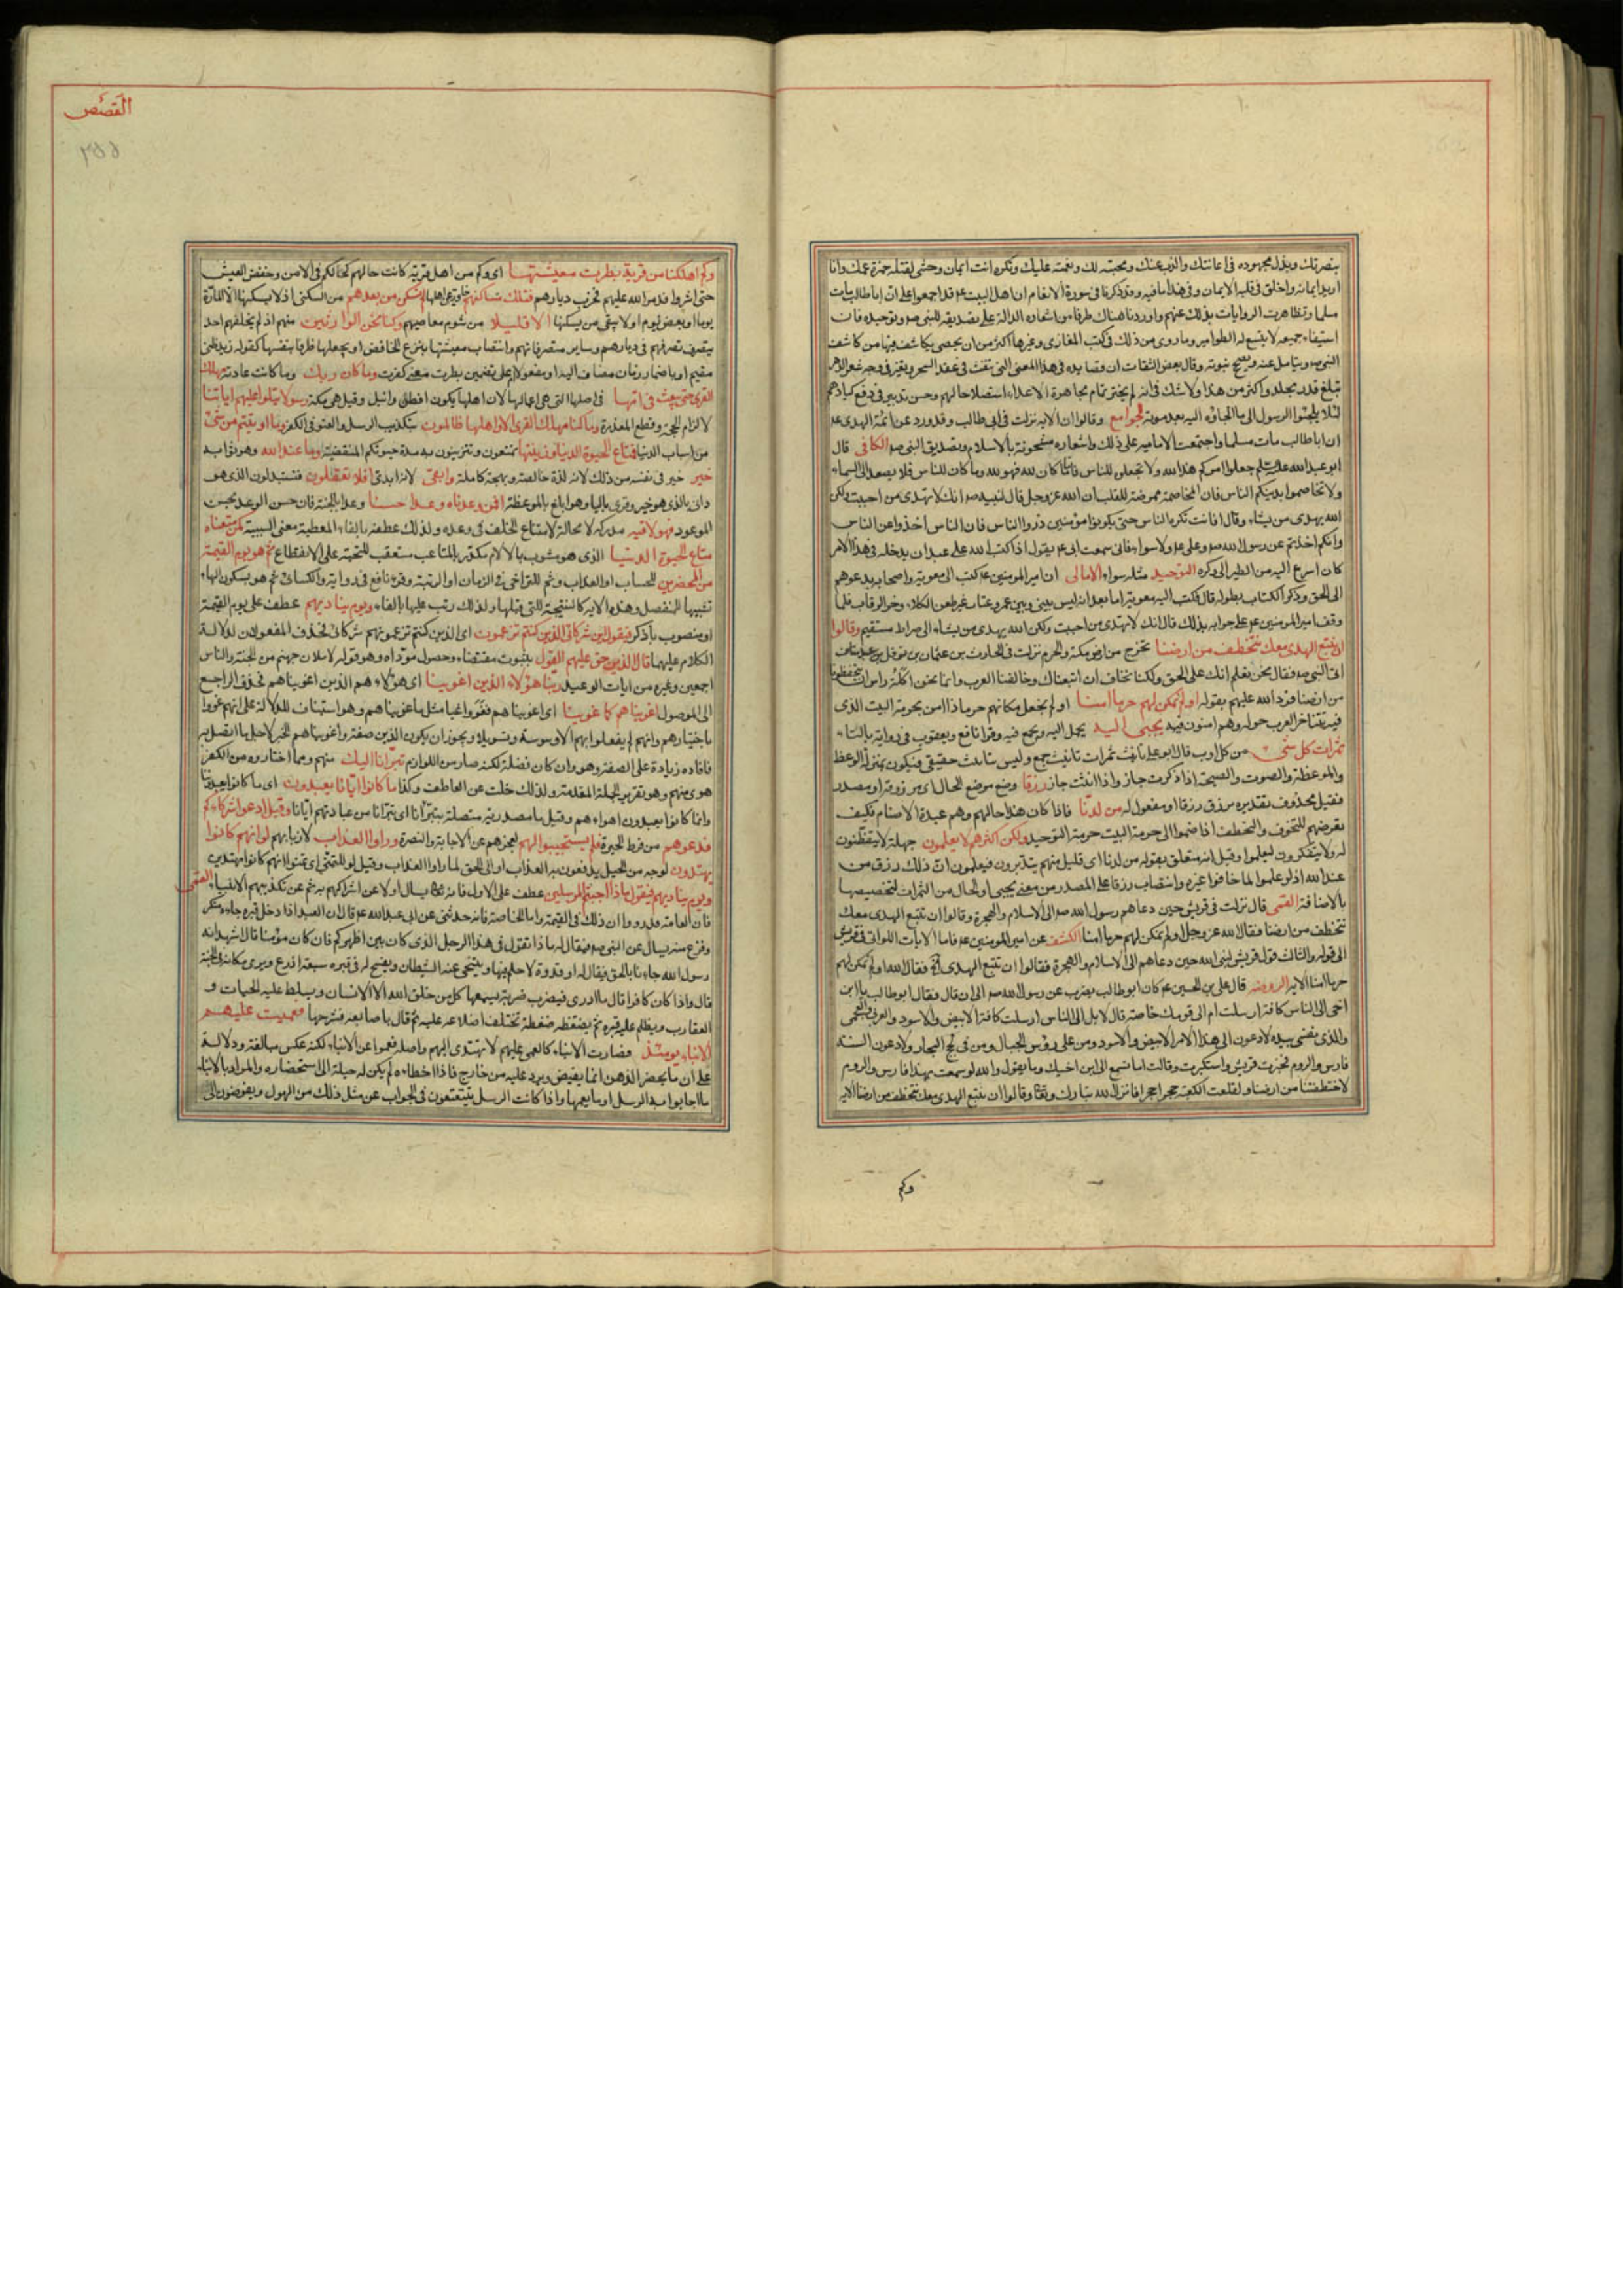 بنصرتك وبذل مجهوده فى اعانتك والذب عنك ومحبته لك ونعمته عليك وتكره انت ايمان وحشى لقتله حمزة عمك وانا
اريد ايمانه واخلق فى قلبه الايمان وفى هذا ما فيه وقد ذكرنا فى سورة الانعام ان اهل البيت ع قد اجمعوا على ان ابا طالب مات
مسلما وتظاهرت الروايات بذلك عنهم واوردنا هناك طرفا من اشعاره الدالة على تصديقه للنبى ص وتوحيده فان
استيفاء جميعه لا يتسع له الطوامير وما روى من ذلك فى كتب المغازى وغيرها اكثر من ان يحصى يكاشف فيها من كاشف
النبى ص ويناضل عنه ويصحح نبوته وقال بعض الثقات ان قصايده فى هذا المعنى التى تنفث فى عقد السحر وتغبر فى وجه شعراء الدهر
تبلغ قدر مجلد واكثر من هذا ولا شك فى انه لم يختر تمام مجاهرة الاعداء استصلاحا لهم وحسن تدبير فى دفع كيادهم
لئلا يلجئوا الرسول الى ما الجاؤه اليه بعد موته الجوامع وقالوا ان الاية نزلت فى ابى طالب وقد ورد عن ائمة الهدى ع
ان ابا طالب مات مسلما واجتمعت الامامية على ذلك واشعاره مشحونة بالاسلام وبتصديق النبى ص الكافى قال
ابو عبد الله عليه السلم اجعلوا امركم هذا لله ولا تجعلوه للناس فانه ما كان لله فهو لله وما كان للناس فلا يصعد الى السماء
ولا تخاصموا بدينكم الناس فان المخاصمة ممرضة للقلب ان الله عز وجل قال لنبيه ص انك لا تهدى من احببت ولكن
الله يهدى من يشاء وقال افانت تكره الناس حتى يكونوا مؤمنين ذروا الناس فان الناس اخذوا عن الناس
وانكم اخذتم عن رسول الله ص وعلى ع ولا سواء فانى سمعت ابى ع يقول اذا كتب الله على عبد ان يدخله فى هذا الامر
كان اسرع اليه من الطير الى وكره التوحيد مثله سواء الامالى ان امير المومنين ع كتب الى معوية واصحابه يدعوهم
الى الحق وذكر الكتاب بطوله قال فكتب اليه معوية اما بعد انه ليس بينى وبين عمرو عتاب غير طعن الكلا وحز الرقاب فلما
وقف امير المومنين ع على جوابه بذلك قال انك لا تهدى من احببت ولكن الله يهدى من يشاء الى صراط مستقيم وقالوا
ان نتبع الهدى معك نتخطف من ارضنا نخرج من ارض مكة والحرم نزلت فى الحارث بن عثمان بن نوفل بن عبد مناف
اتى النبى ص فقال نحن نعلم انك على الحق ولكنا نخاف ان اتبعناك وخالفنا العرب وانما نحن اكلة راس ان يتخطفونا
من ارضنا فرد الله عليهم بقوله اولم نمكن لهم حرما امنا اولم نجعل مكانهم حرما ذا امن بحرمة البيت الذى
فيه تتناحر العرب حوله وهم امنون فيه يجبى اليه يحمل اليه ويجمع فيه وقرا نافع ويعقوب فى رواية بالتاء
ثمرات كل شئ من كل اوب قال ابو على تانيث ثمرات تانيث جمع وليس تانيث حقيقى فيكون بمنزلة الوعظ
والموعظة والصوت والصيحة اذا ذكرت جاز واذا انثت جاز رزقا وضع موضع الحال اى مرزوقة او مصدر
فقيل محذوف تقديره نرزق رزقا او مفعول له من لدنا فاذا كان هذا حالهم وهم عبدة الاصنام فكيف
نعرضهم للتخوف والتخطف اذا ضموا الى حرمة البيت حرمة التوحيد ولكن اكثرهم لا يعلمون جهلة لا يتفطنون
له ولا يتفكرون ليعلموا وقيل انه متعلق بقوله من لدنا اى قليل منهم يتدبرون فيعلمون ان ذلك رزق من
عند الله اذ لو علموا لما خافوا غيره وانتصاب رزقا على المصدر من معنى يجبى او الحال من الثمرات لتخصيصها
بالاضافة القمى قال نزلت فى قريش حين دعاهم رسول الله ص الى الاسلام والهجرة وقالوا ان نتبع الهدى معك
نتخطف من ارضنا فقال الله عز وجل اولم نمكن لهم حرما امنا الكشف عن امير المومنين ع فاما الايات اللواتى فى قريش
الى قوله والثالث قول قريش لنبى الله حين دعاهم الى الاسلام والهجرة فقالوا ان نتبع الهدى اه فقال الله اولم نمكن لهم
حرما امنا الاية الروضة قال على بن الحسين ع كان ابو طالب يضرب عن رسول الله ص الى ان قال فقال ابو طالب يا ابن
اخى الى الناس كافة ارسلت ام الى قومك خاصة قال لا بل الى الناس ارسلت كافة الابيض والاسود والعربى والعجمى
والذى نفسى بيده لادعون الى هذا الامر الابيض والاسود ومن على رؤس الجبال ومن فى لجج البحار ولادعون السنة
فارس والروم فتجبرت قريش واستكبرت وقالت اما تسمع الى ابن اخيك وما يقول والله لو سمعت بهذا فارس والروم
لاختطفتنا من ارضنا ولقلعت الكعبة حجرا حجرا فانزل الله تبارك وتعالى وقالوا ان نتبع الهدى معك نتخطف من ارضنا الاية
وكم
القصص
وكم اهلكنا من قرية بطرت معيشتها اى وكم من اهل قرية كانت حالهم كحالكم فى الامن وخفض العيش
حتى اشروا فدمر الله عليهم وخرب ديارهم فتلك مساكنهم خاوية على اهلها لم تسكن من بعدهم من السكنى اذ لا يسكنها الا المارة
يوما او بعض يوم او لا يبقى من يسكنها الا قليلا من شوم معاصيهم وكنا نحن الوارثين منهم اذ لم يخلفهم احد
يتصرف تصرفهم فى ديارهم وساير متصرفاتهم وانتصاب معيشتها بنزع الخافض او بجعلها ظرفا بنفسها كقوله زيد ظنى
مقيم او باضمار زمان مضاف اليه او مفعولا على تضمين بطرت معنى كفرت وما كان ربك وما كانت عادته مهلك
القرى حتى يبعث فى امها فى اصلها التى هى اعمالها لان اهلها يكون افطن وانبل وقيل هى مكة رسولا يتلوا عليهم اياتنا
لالزام الحجة وقطع المعذرة وما كنا مهلك القرى الا واهلها ظالمون بتكذيب الرسل والعتو فى الكفر وما اوتيتم من شئ
من اسباب الدنيا فمتاع الحيوة الدنيا وزينتها تمتعون وتتزينون به مدة حيوتكم المنقضية وما عند الله وهو ثوابه
خير خير فى نفسه من ذلك لانه لذة خالصة وبهجة كاملة وابقى لانه ابدى افلا تعقلون فتستبدلون الذى هو
دانى بالذى هو خير وقرى بالياء وهو ابلغ بالموعظة افمن وعدناه وعدا حسنا وعدا بالجنة فان حسن الوعد بحسن
الموعود فهو لاقيه مدركه لا محالة لامتناع الخلف فى وعده ولذلك عطفه بالفاء المعطية معنى السببية كمن متعناه
متاع الحيوة الدنيا الذى هو مشوب بالالام مكدر بالمتاعب مستعقب للتحسر على الانقطاع ثم هو يوم القيمة
من المحضرين للحساب او العذاب وثم للتراخى فى الزمان او الرتبة وقرء نافع فى رواية والكسائى ثم هو بسكون الهاء
تشبيها للمنفصل وهذه الاية كالنتيجة للتى قبلها ولذلك رتب عليها بالفاء ويوم يناديهم عطف على يوم القيمة
او منصوب باذكر فيقول اين شركائى الذين كنتم تزعمون اى الذين كنتم تزعمونهم شركائى فحذف المفعولان لدلالة
الكلام عليهما قال الذين حق عليهم القول بثبوت مقتضاه وحصول مؤداه وهو قوله لاملان جهنم من الجنة والناس
اجمعين وغيره من ايات الوعيد ربنا هؤلاء الذين اغوينا اى هؤلاء هم الذين اغويناهم فحذف الراجع
الى الموصول اغويناهم كما غوينا اى اغويناهم فغووا غيا مثل ما غوينا وهو استيناف للدلالة على انهم غووا
باختيارهم وانهم لم يفعلوا بهم الا وسوسة وتسويلا ويجوز ان يكون الذين صفة واغويناهم الخبر لاجل ما اتصل به
فافاده زيادة على الصفة وهو وان كان فضلة لكنه صار من اللوازم تبرانا اليك منهم ومما اختاروه من الكفر
هوى منهم وهو تقرير للجملة المتقدمة ولذلك خلت عن العاطف وكذا ما كانوا ايانا يعبدون اى ما كانوا يعبدوننا
وانما كانوا يعبدون اهواءهم وقيل ما مصدرية متصلة بتبرأنا اى تبرانا من عبادتهم ايانا وقيل ادعوا شركاءكم
فدعوهم من فرط الحيرة فلم يستجيبوا لهم لعجزهم عن الاجابة والنصرة وراوا العذاب لازما بهم لو انهم كانوا
يهتدون لوجه من الحيل يدفعون به العذاب او الى الحق لما راوا العذاب وقيل لو للتمنى اى تمنوا انهم كانوا مهتدين
ويوم يناديهم فيقول ماذا اجبتم المرسلين عطف على الاول فانه تعالى يسال اولا عن اشراكهم به ثم عن تكذيبهم الانبياء القمى
فان العامة قد رووا ان ذلك فى القيمة واما الخاصة فانه حدثنى عن ابى عبد الله ع قال ان العبد اذا دخل قبره جاءه منكر
وفزع منه يسال عن النبى ص فيقال له ماذا تقول فى هذا الرجل الذى كان بين اظهركم فان كان مؤمنا قال اشهد انه
رسول الله جاءنا بالحق فيقال له ارقد رقدة لا حلم فيها ويتنحى عنه الشيطان ويفسح له فى قبره سبعة اذرع ويرى مكانه فى الجنة
قال واذا كان كافرا قال ما ادرى فيضرب ضربة يسمعها كل من خلق الله الا الانسان ويسلط عليه الحيات و
العقارب ويظلم عليه قبره ثم يضغطه ضغطة تختلف اضلاعه عليه ثم قال باصابعه فشرجها فعميت عليهم
الانباء يومئذ فصارت الانباء كالعمى عليهم لا تهتدى اليهم واصله فعموا عن الانباء لكنه عكس مبالغة ودلالة
على ان ما يحضر الذهن انما يفيض ويرد عليه من خارج فاذا اخطاءه لم يكن له حيلة الى استحضاره والمراد بالانباء
ما اجابوا به الرسل او ما يعمها واذا كانت الرسل يتتعتعون فى الجواب عن مثل ذلك من الهول ويفوضون الى